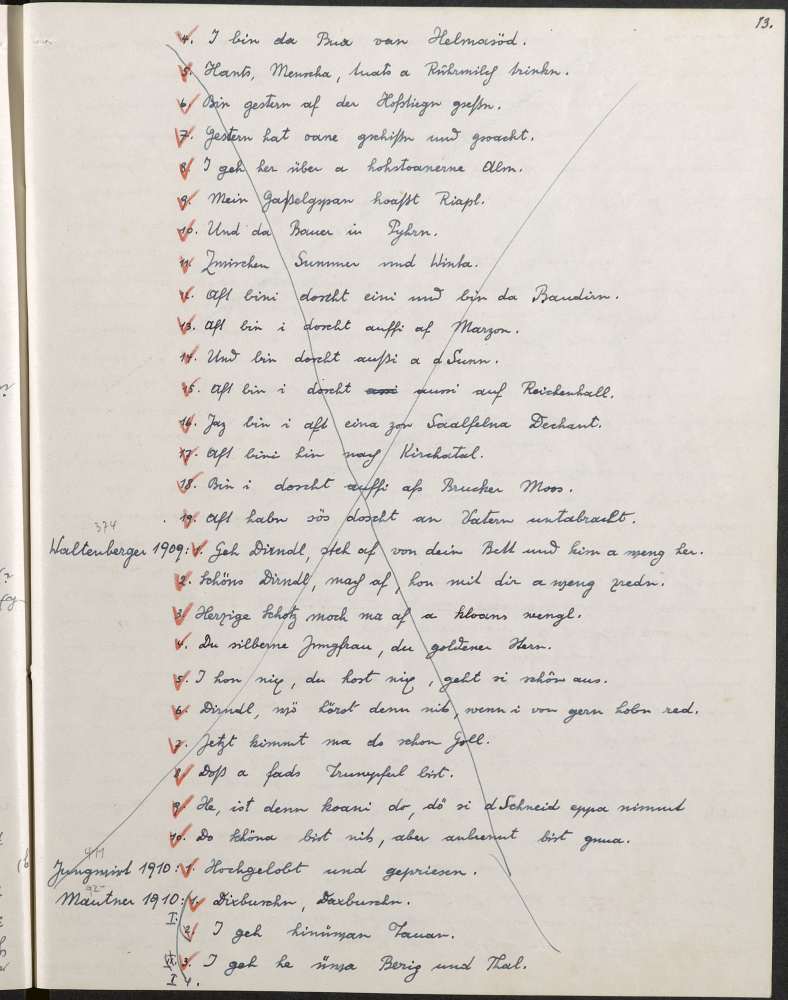 13.
4. I bin da Bua van Helmasöd.
5. Hants, Menscha, tuats a Rührmilch trinkn.
6. Bin gestern af der Hofstiegn gseßn.
7. Gestern hat oane gschißn und gwacht.
8. I geh her über a hohstoanerne Alm.
9. Mein Gaßelgspan hoaßt Riapl.
10. Und da Bauer in Pyhrn.
11. Zwischen Summer und Winta.
12. Aft bini dorcht eini und bin da Baudirn.
13. Aft bin i dorcht auffi af Marzon.
14. Und bin dorcht außi a d Sunn.
15. Aft bin i dorcht aussi auf Reichenhall.
16. Jaz bin i aft eina zon Saalfelna Dechant.
17. Aft bini hin nach Kirchatal.
18. Bin i dorcht auffi afs Brucker Moos.
19. Aft habn sös dorcht an Vatern untabracht.
374
Waltenberger 1909: 1. Geh Dirndl, steh af von dein Bett und kim a weng her.
2. Schöns Dirndl, mach af, hon mit dir a weng zredn.
3. Herzige Schotz moch ma af a kloans wengl.
4. Du silberne Jungfrau, du goldener Stern.
5. I hon nix, du host nix, geht si schön aus.
6. Dirndl, wö hörst denn nit, wenn i von gern hobn red.
7. Jetzt kimmt ma do schon
8. Doß a fads bist.
9. He, ist denn koani do, dö si d Schneid eppa nimmt
10. Do schöna bist nit, aber anbrennt bist gnua.
411
Jungwirt 1910: 1. Hochgelobt und gepriesen.
92
Mautner 1910: 1. Dirbuschn, Daxbuschn.
I. 2. I geh hinüwan Tauan.
II. 3. I geh he üwa Berig und Thal.
I 4.